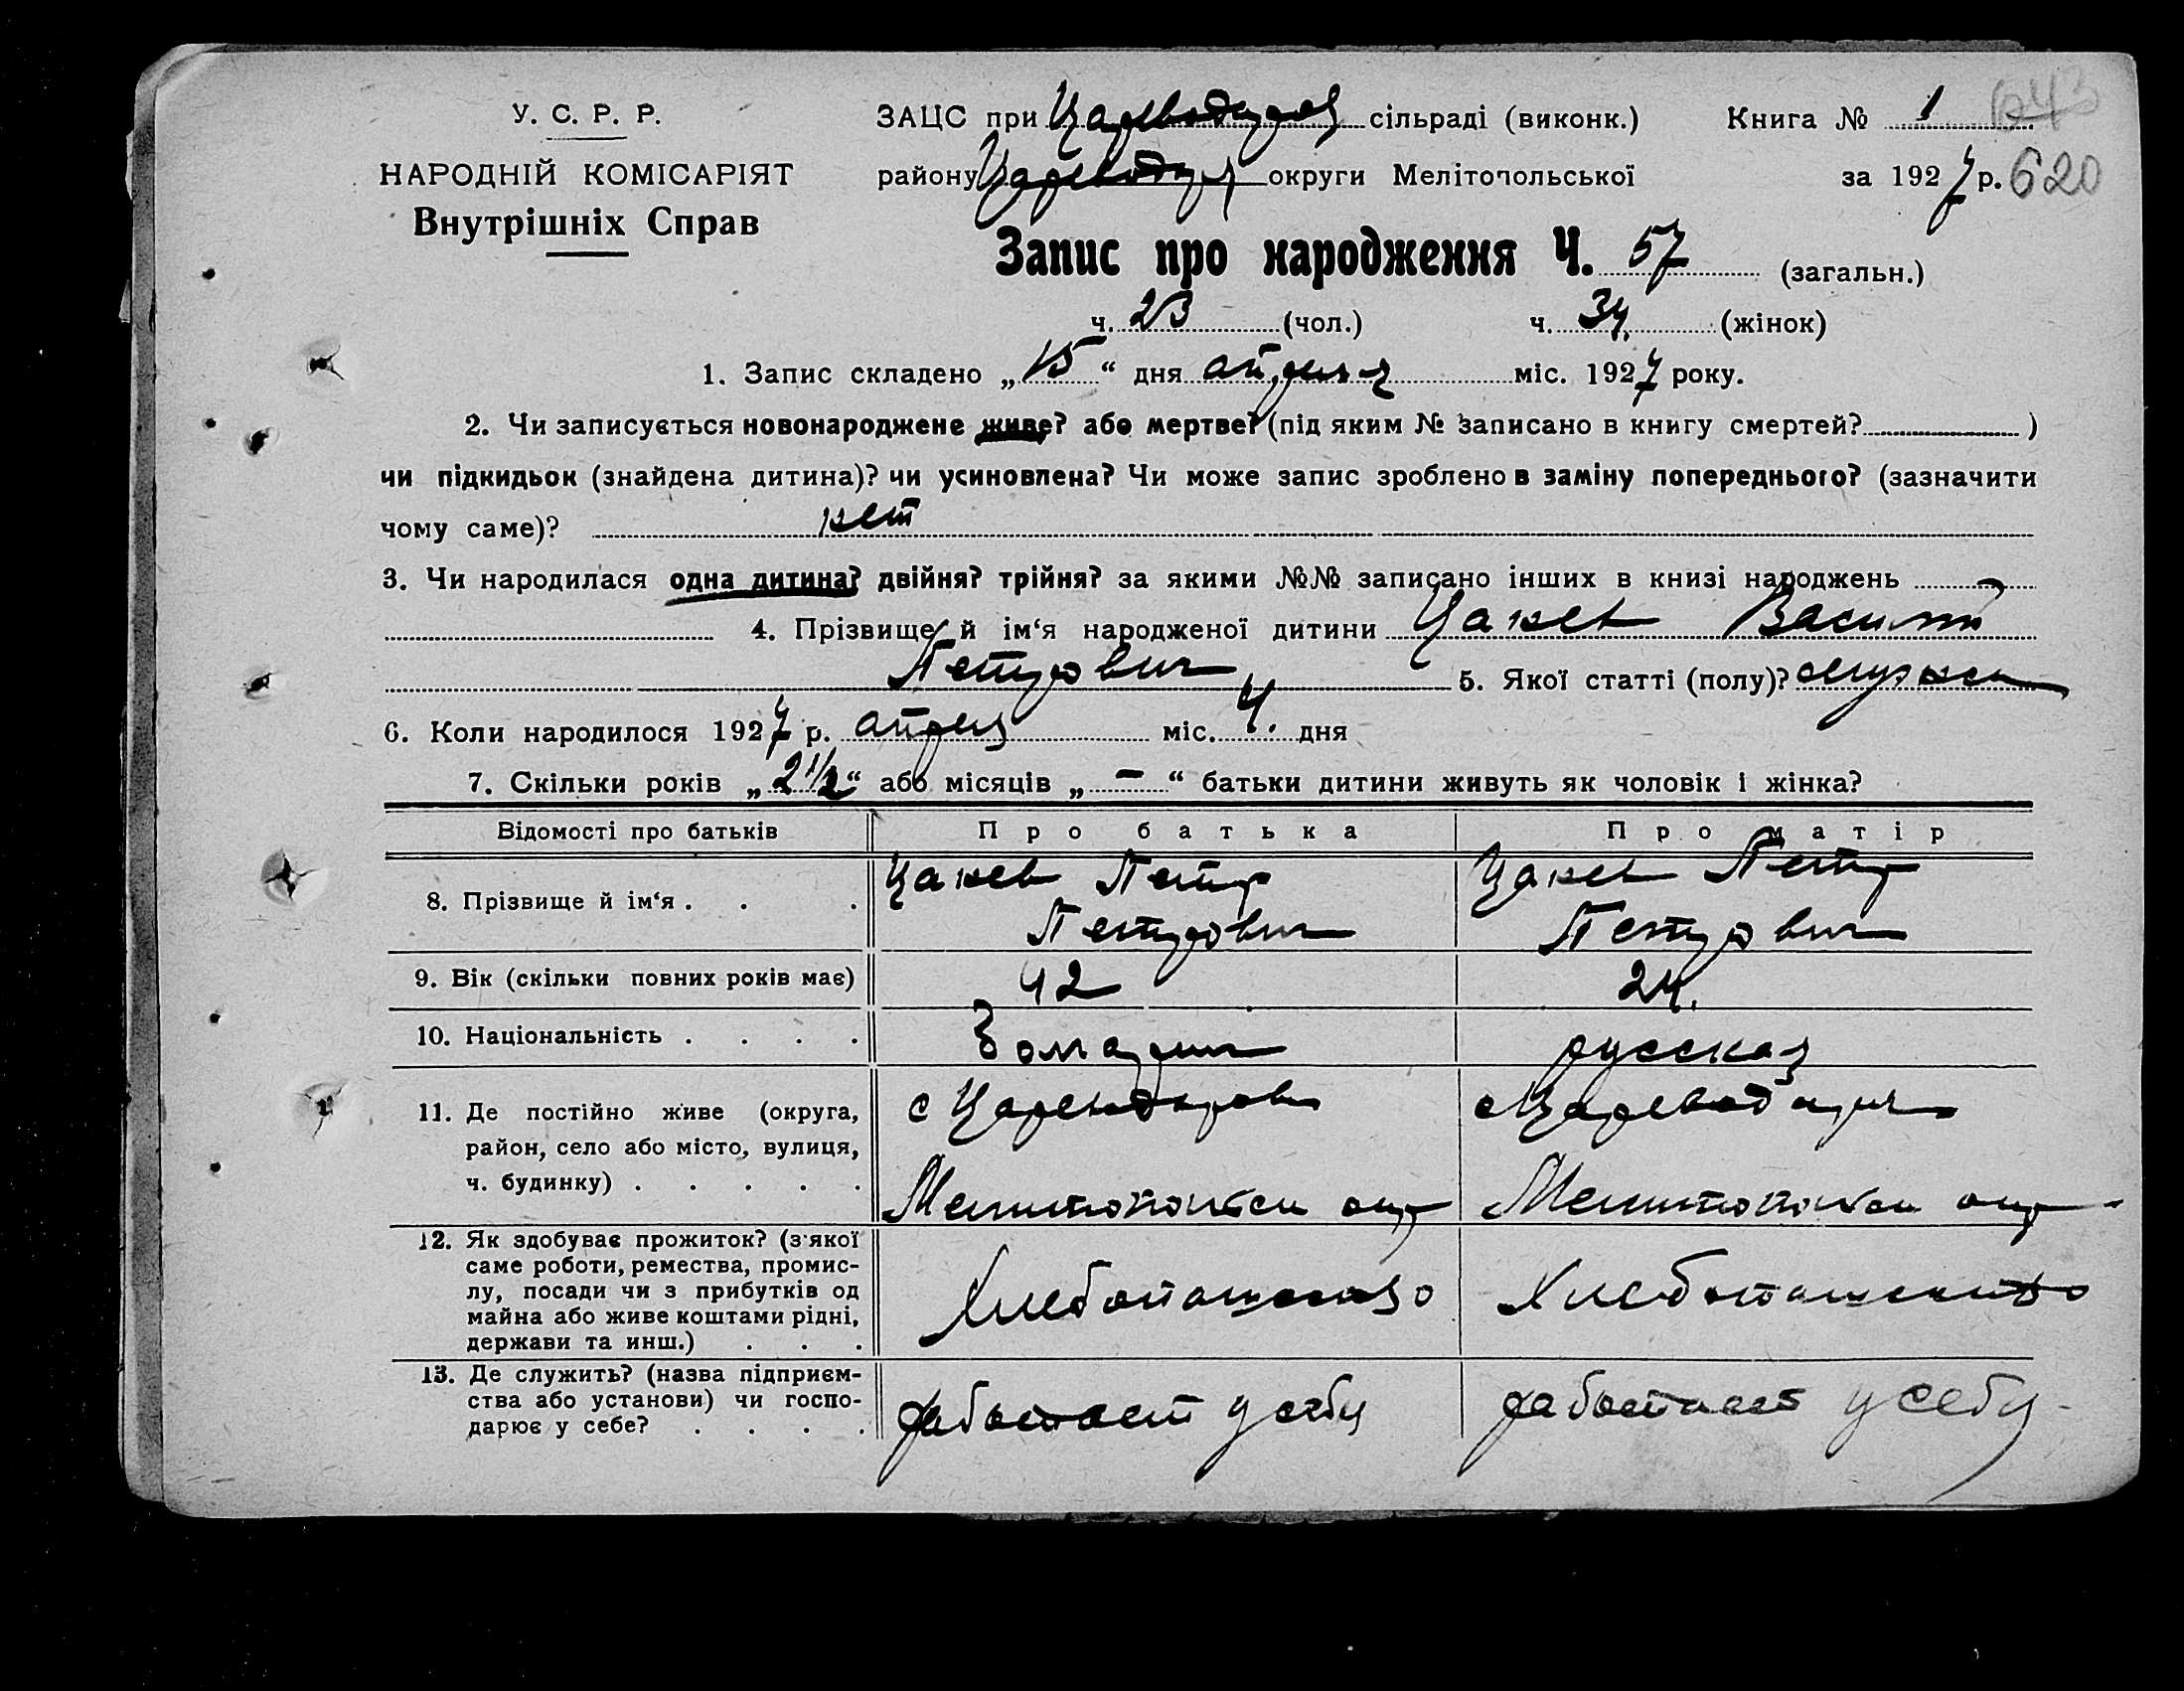 У. С. Р. Р.
НАРОДНІЙ КОМІСАРІЯТ
Внутрішніх Справ
ЗАЦС при сільраді (виконк.) Книга № 1
району округи Мелітопольської за 1927 р. 620
Запис про народження Ч. 57 (загальн.)
ч. 23 (чол.) ч. 34. (жінок)
1. Запис складено „ 15 “ дня апреля міс. 1927 року.
2. Чи записується новонароджене живе? або мертве? (під яким № записано в книгу смертей? )
чи підкидьок (знайдена дитина)? чи усиновлена? Чи може запис зроблено в заміну попереднього? (зазначити
чому саме)? нет
3. Чи народилася одна дитина? двійня? трійня? за якими №№ записано інших в книзі народжень —
4. Прізвище й ім‘я народженої дитини Цанев Василий
Петрович 5. Якої статті (полу)?
6. Коли народилося 1927 р. апреля міс. 4. дня
7. Скільки років „ 2 1/2 “ або місяців „ — “ батьки дитини живуть як чоловік і жінка?
Відомості про батьків Про батька Про матір
8. Прізвище й ім‘я . . . Цанев Петр Цанев Петр
Петрович Петрович
9. Вік (скільки повних років має) 42 24.
10. Національність . . . . русская
11. Де постійно живе (округа, с
район, село або місто, вулиця,
ч. будинку) . . . . . Мелитопольски окр Мелитопольски окр
12. Як здобуває прожиток? (з якої
саме роботи, ремества, промис-
лу, посади чи з прибутків од Хлебопашество Хлебопашество
майна або живе коштами рідні,
держави та инш.) . . .
13. Де служить? (назва підприєм-
ства або установи) чи госпо- работает у себя работает у себя
дарює у себе? . . . .